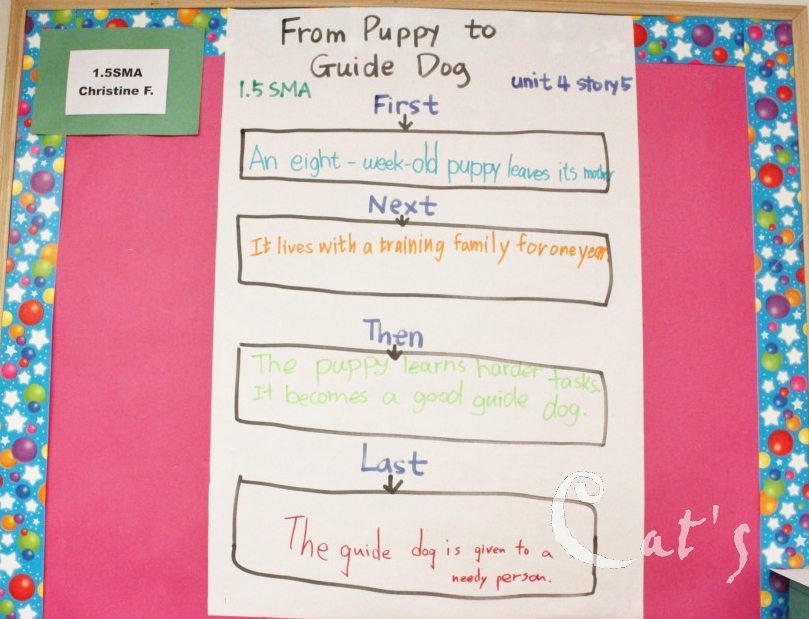 1.5SMA
Christine F.
From Puppy to
Guide Dog
1.5 SMA
unit 4 story 5
First
An eight-week-old puppy leaves its mother
Next
It lives with a training family for one year
Then
The puppy learns harder tasks
It becomes a good guide dog.
Last
The guide dog is given to a
needy person.
Cat's